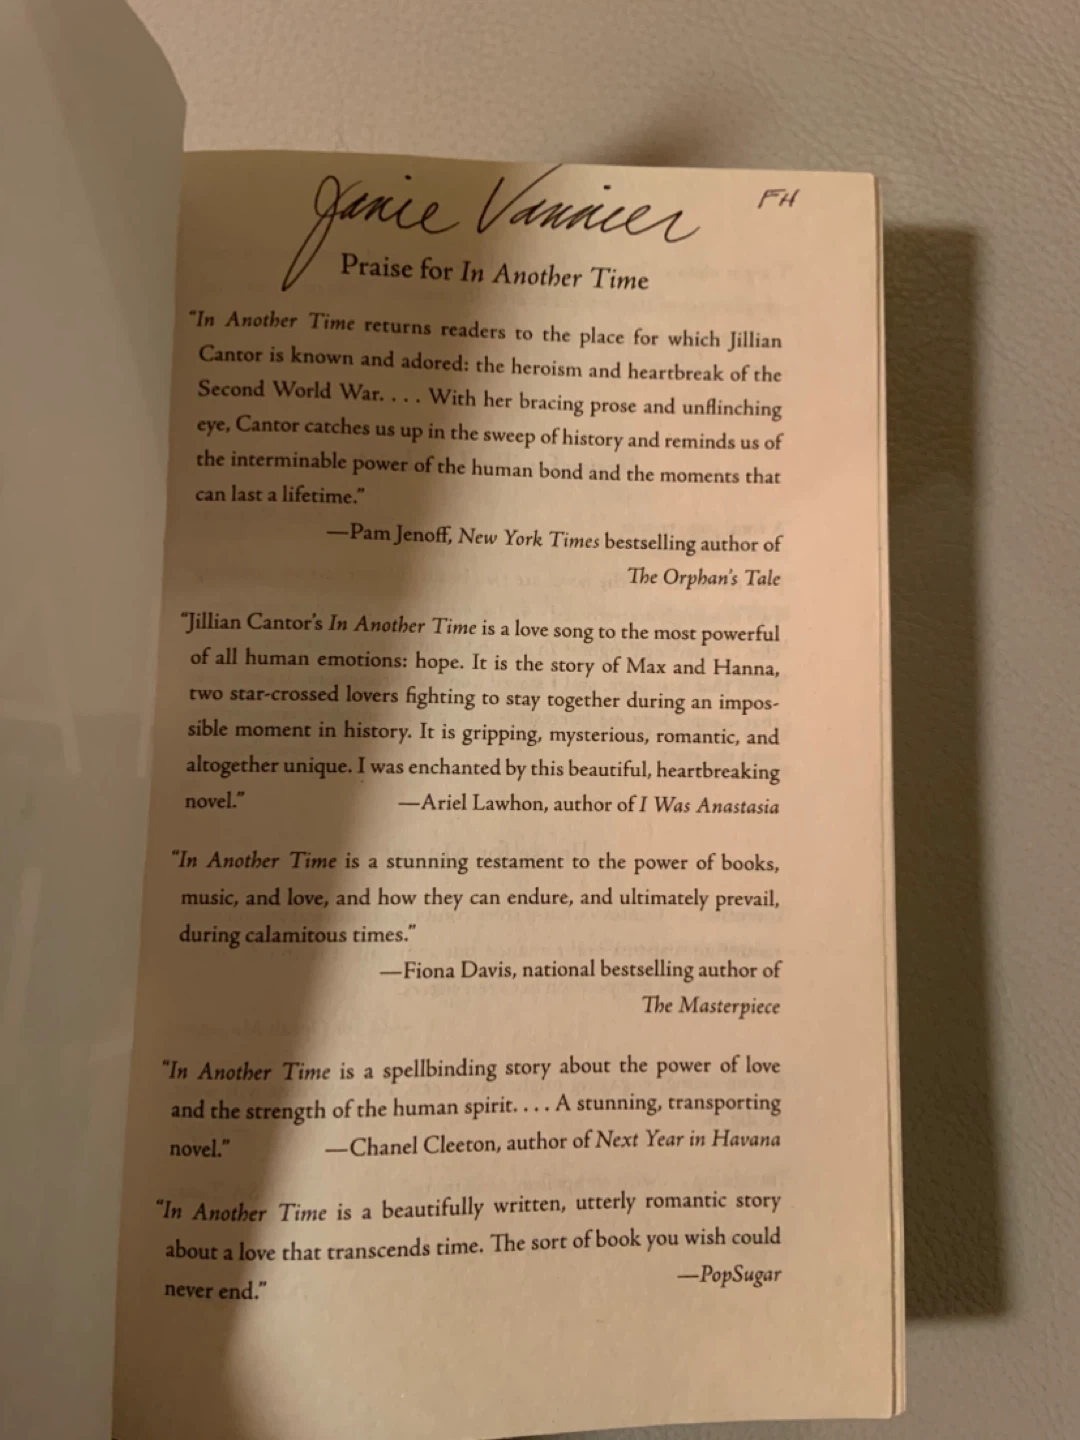 Janie Vannier
FH
Praise for In Another Time
“In Another Time returns readers to the place for which Jillian
Cantor is known and adored: the heroism and heartbreak of the
Second World War. . . . With her bracing prose and unflinching
eye, Cantor catches us up in the sweep of history and reminds us of
the interminable power of the human bond and the moments that
can last a lifetime.”
—Pam Jenoff, New York Times bestselling author of
The Orphan’s Tale
“Jillian Cantor’s In Another Time is a love song to the most powerful
of all human emotions: hope. It is the story of Max and Hanna,
two star-crossed lovers fighting to stay together during an impos-
sible moment in history. It is gripping, mysterious, romantic, and
altogether unique. I was enchanted by this beautiful, heartbreaking
novel.” —Ariel Lawhon, author of I Was Anastasia
“In Another Time is a stunning testament to the power of books,
music, and love, and how they can endure, and ultimately prevail,
during calamitous times.”
—Fiona Davis, national bestselling author of
The Masterpiece
“In Another Time is a spellbinding story about the power of love
and the strength of the human spirit. . . . A stunning, transporting
novel.” —Chanel Cleeton, author of Next Year in Havana
“In Another Time is a beautifully written, utterly romantic story
about a love that transcends time. The sort of book you wish could
never end.” —PopSugar